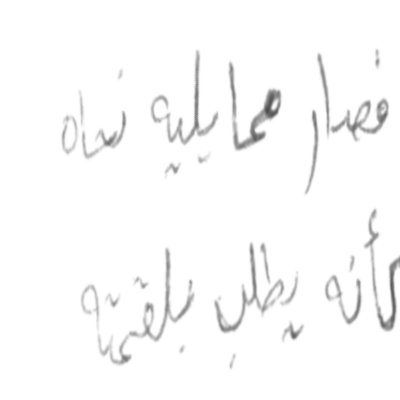 فصار مما يليه تماه
كأنه يطلب بلقمته